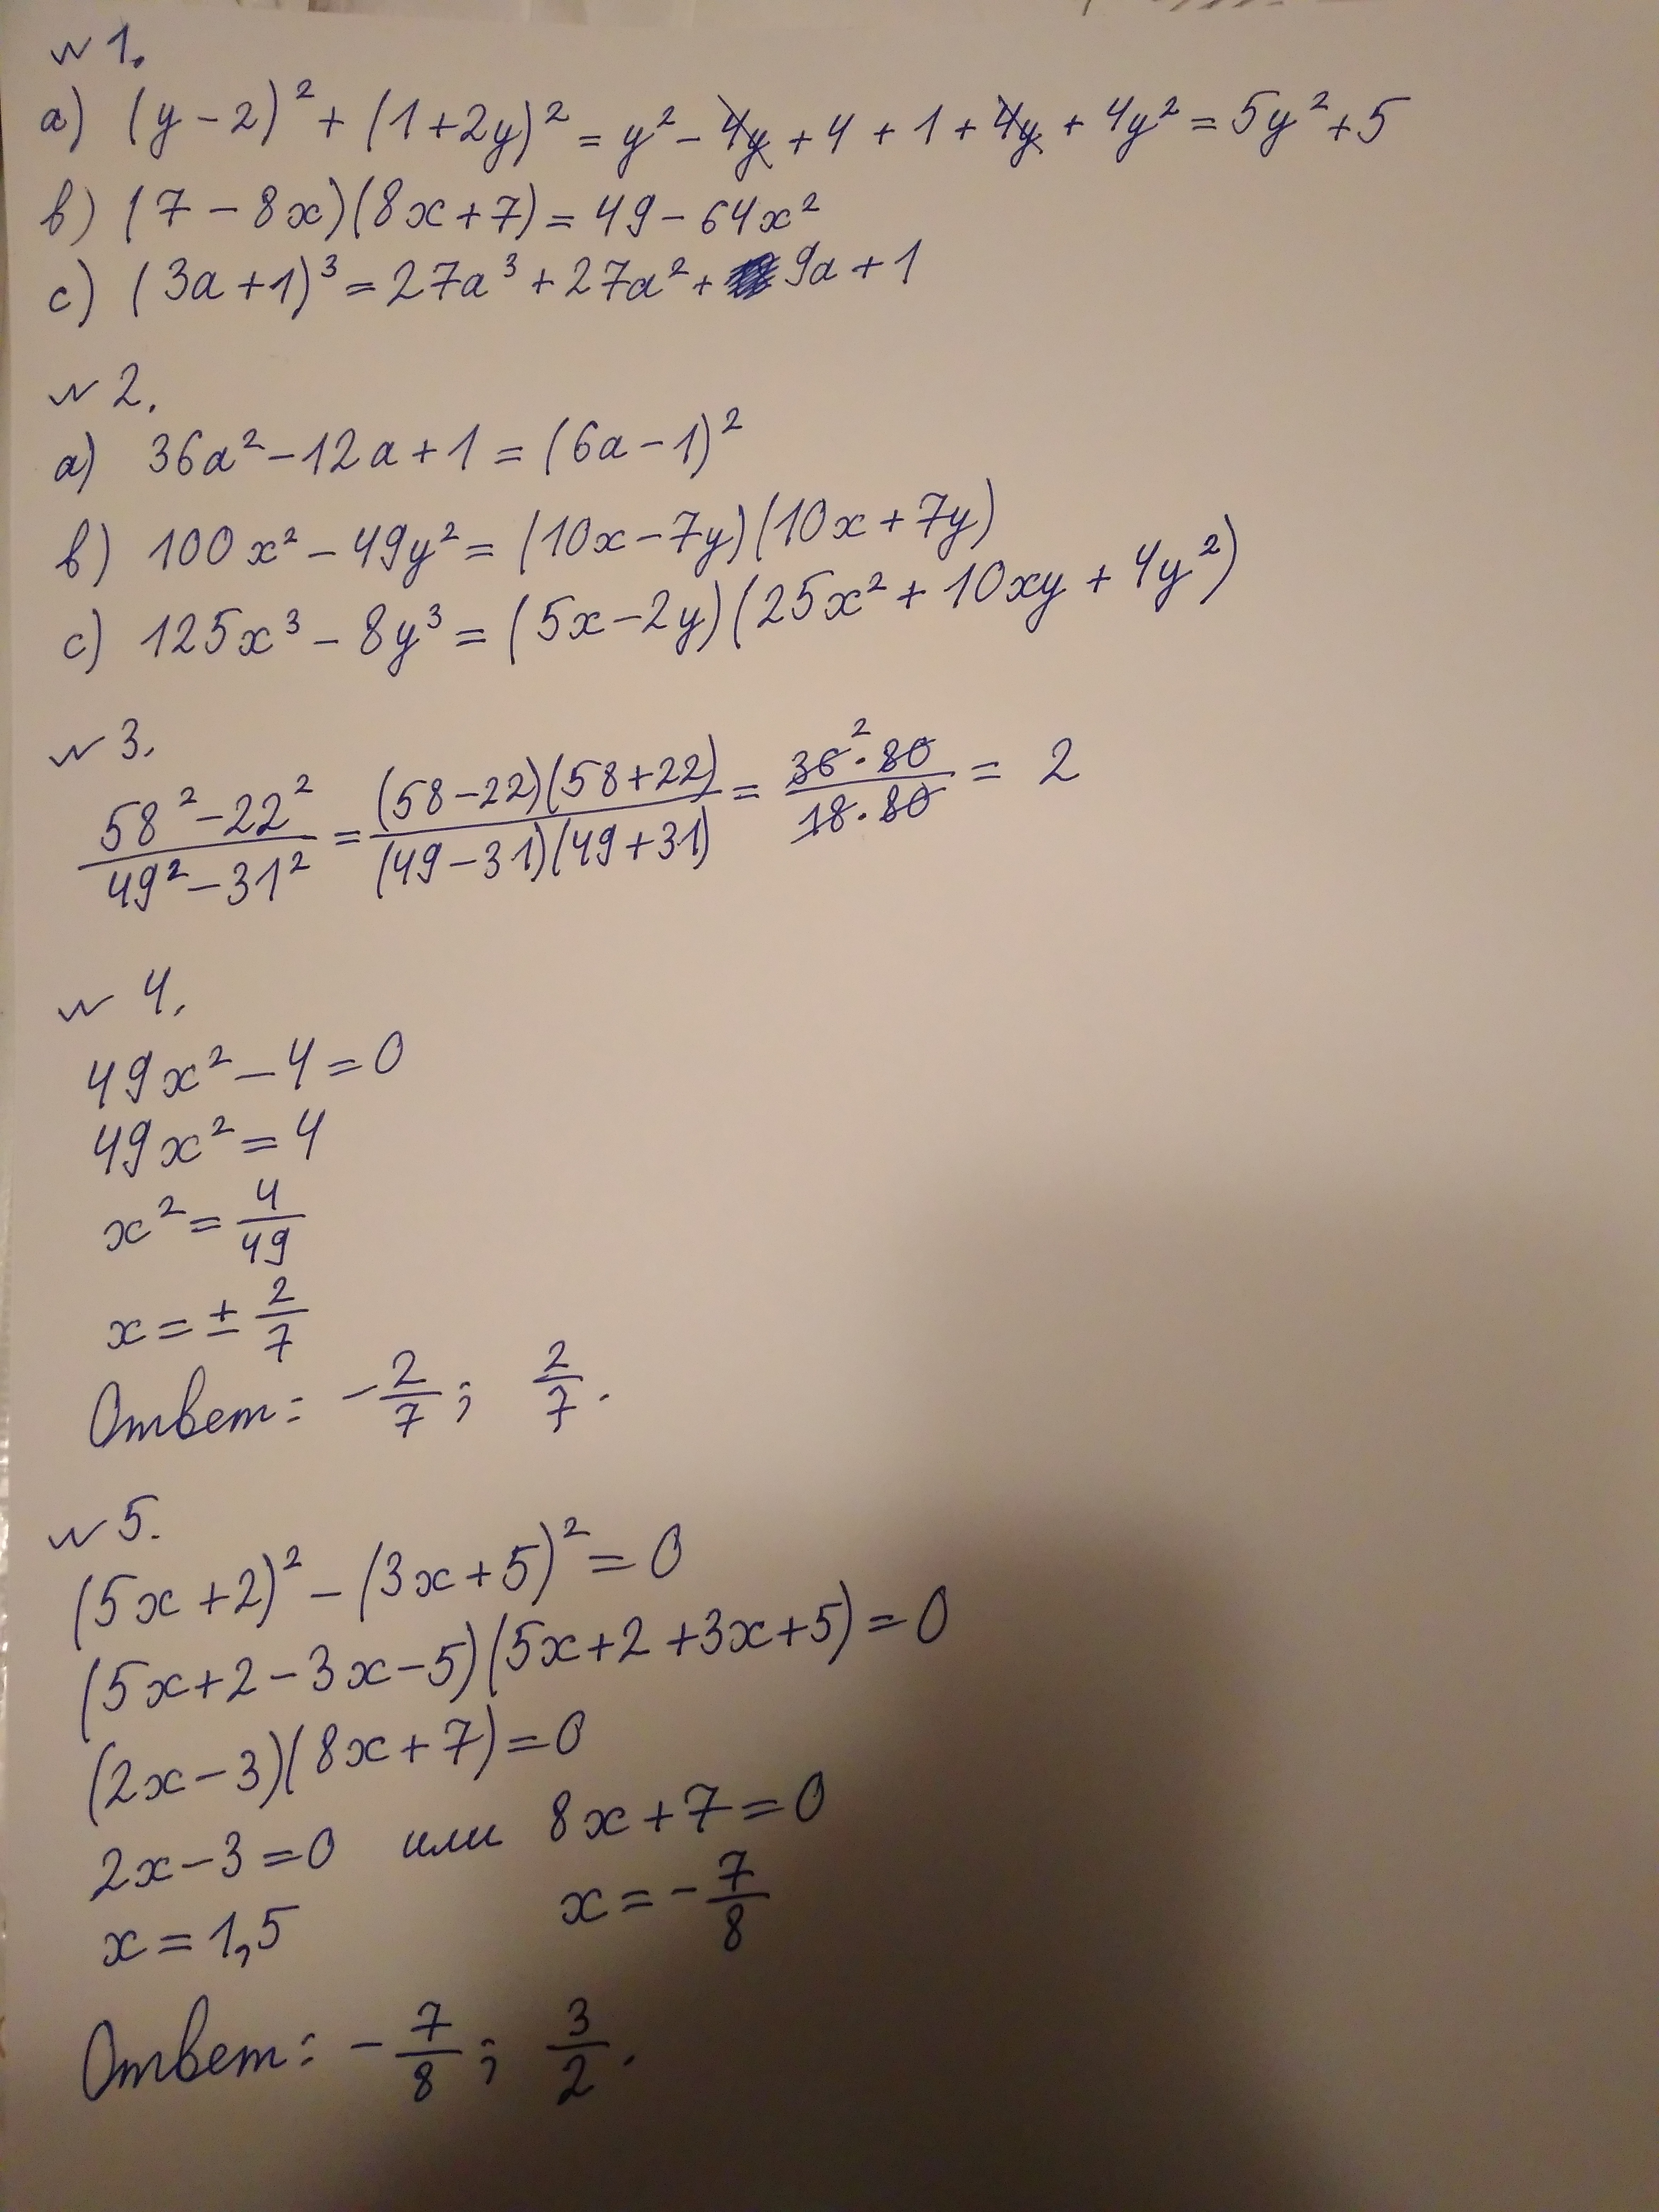 № 1.
a) (y-2)² + (1+2y)² = y² - 4y + 4 + 1 + 4y + 4y² = 5y² + 5
b) (7 - 8x)(8x+7) = 49 - 64x²
c) (3a+1)³ = 27a³ + 27a² + 9a + 1
№ 2.
a) 36a² - 12a + 1 = (6a - 1)²
b) 100x² - 49y² = (10x - 7y)(10x + 7y)
c) 125x³ - 8y³ = (5x - 2y)(25x² + 10xy + 4y²)
№ 3.
(58² - 22²)/(49² - 31²) = ((58-22)(58+22))/((49-31)(49+31)) = (36² · 80)/(18 · 80) = 2
№ 4.
49x² - 4 = 0
49x² = 4
x² = 4/49
x = ± 2/7
Ответ: -2/7; 2/7.
№ 5.
(5x+2)² - (3x+5)² = 0
(5x+2-3x-5)(5x+2+3x+5) = 0
(2x-3)(8x+7) = 0
2x-3 = 0 или 8x+7 = 0
x = 1,5 x = -7/8
Ответ: -7/8; 3/2.